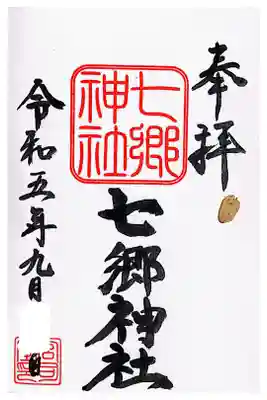 奉拝
七郷
神社
七郷神社
令和五年九月
日